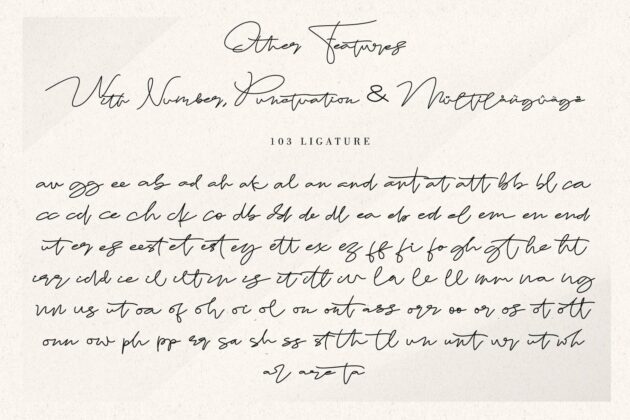 Other Features
With Number, Punctuation & Multilanguage
103 LIGATURE
av gg ee ab ad ah ak al an and ant at att bb bl ca
cc cd ce ch ck co db dd de dl ea eb ed el em en end
er es eest et est ey ett ex ez ff fi fo gh gt he ht
ce il in is it itt la le ll mm na ng
nn us ut oa of oh oi ol on ont ass orr oo or os ot ott
onn ow ph pp rr sa sh ss st th tl un unt ur ut wh
are ta